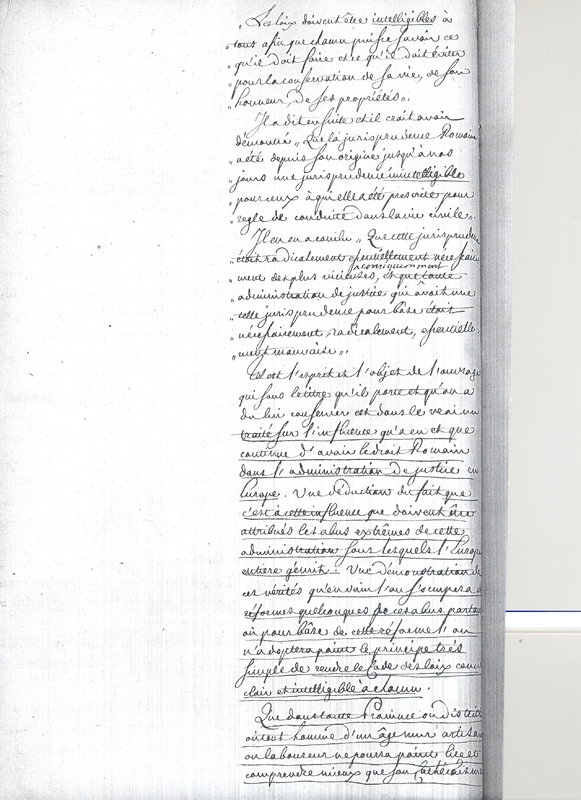 „ Les loix doivent être intelligibles à
„ tous afin que chacun puisse savoir ce
„ qu'il doit faire et ce qu'il doit éviter
„ pour la conservation de sa vie, de son
„ honneur, de ses propriétés".
Il a dit ensuite et il croit avoir
démontré „ Que la jurisprudence Romaine
„ a été depuis son origine jusqu'à nos
„ jours une jurisprudence inintelligible
„ pour ceux à qui elle a été prescrite pour
„ regle de conduite dans la vie civile".
Il en a conclu „ Que cette jurisprudence
„ étoit radicalement essentiellement nécessaire
„ ment des plus vicieuses, et que toute
„ administration de justice qui avait une
„ telle jurisprudence pour bâse étoit
„ nécessairement, radicalement, essentielle
„ ment mauvaise".
Tel est l'esprit et l'objet de l'ouvrage
qui sous le titre qu'il porte et qu'on a
du lui conserver est dans le vrai un
traité sur l'influence qu'a eu et que
continue d'avoir le droit Romain
dans l'administration de justice en
Europe. Une déduction du fait que
c'est à cette influence que doivent être
attribués les abus extrêmes de cette
administration sous lesquels l'Europe
entiere gémit. Une démonstration de
ces vérités qu'en vain l'on s'occupera de
réformes quelconques de ces abus partout
où pour bâse de cette réforme l'on
n'adoptera point le principe très
simple de rendre le Code des loix
clair et intelligible à chacun.
Que dans toute Province ou district
où tout homme d'un âge mur artisan
ou laboureur ne pourra point lire et
comprendre mieux que son Cathéchisme